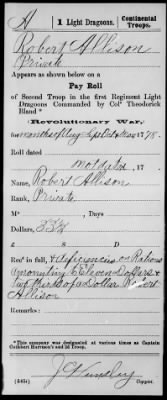 A
1 Light Dragoons.
Continental
Troops.
Robert Allison
Private
Appears as shown below on a
Pay Roll
of Second Troop in the first Regiment Light
Dragoons Commanded by Colº Theodorick
Bland*
Revolutionary War,
for months of Aug Sep Oct & Nov, 1778.
Roll dated
not dated, 17
Name, Robert Allison
Rank, Private
M , Days,
Dollars, 33⅓
£ S D
Rec'd in full, & deficiencies on Rations
amounting to Eleven Dollars &
two thirds of a Dollar Robert
Allison
Remarks:
*This company was designated at various times as Captain
Cuthbert Harrison's and 2d Troop.
(545c)
Copyist.